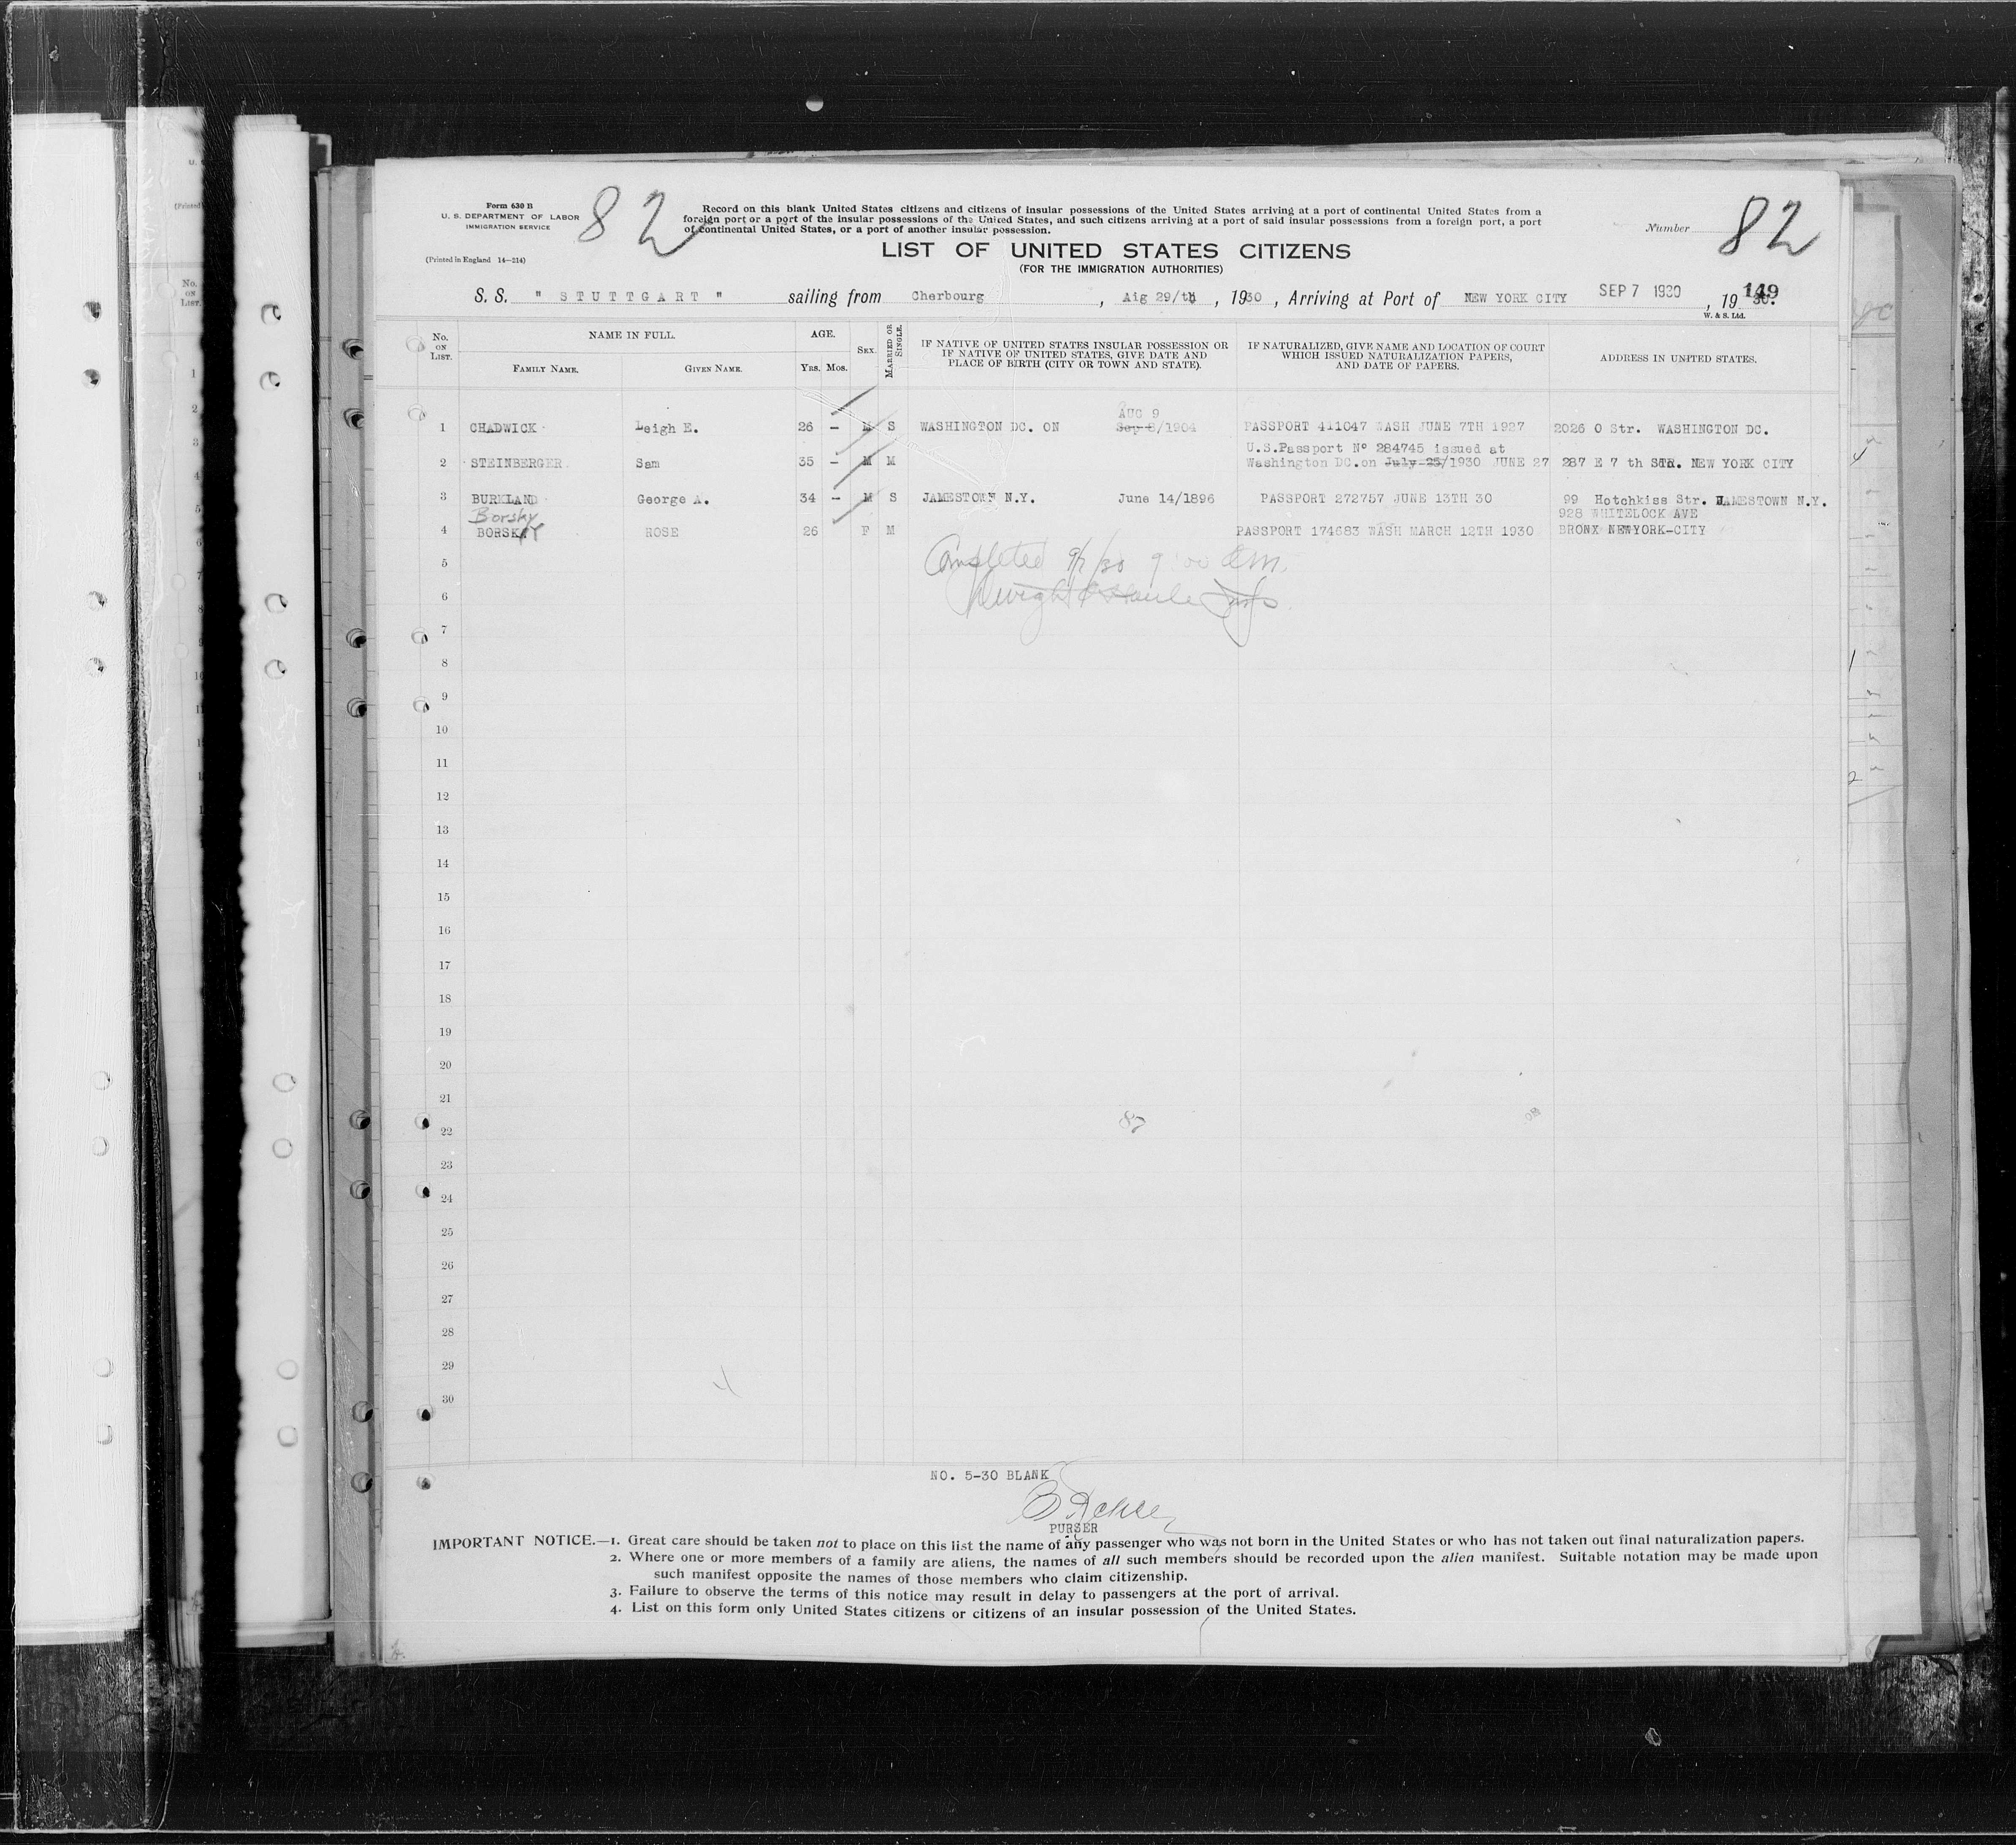 Form 630 B
U. S. DEPARTMENT OF LABOR
IMMIGRATION SERVICE
(Printed in England 14—214)
82
Record on this blank United States citizens and citizens of insular possessions of the United States arriving at a port of continental United States from a
foreign port or a port of the insular possessions of the United States, and such citizens arriving at a port of said insular possessions from a foreign port, a port
of continental United States, or a port of another insular possession.
Number 82
LIST OF UNITED STATES CITIZENS
(FOR THE IMMIGRATION AUTHORITIES)
S. S. " STUTTGART " sailing from Cherbourg , Aig 29/th , 1930 , Arriving at Port of NEW YORK CITY SEP 7 1930 , 19 30.
149
W. & S. Ltd.
No. ON LIST. NAME IN FULL. AGE. SEX. MARRIED OR SINGLE. IF NATIVE OF UNITED STATES INSULAR POSSESSION OR IF NATIVE OF UNITED STATES, GIVE DATE AND PLACE OF BIRTH (CITY OR TOWN AND STATE). IF NATURALIZED, GIVE NAME AND LOCATION OF COURT WHICH ISSUED NATURALIZATION PAPERS, AND DATE OF PAPERS. ADDRESS IN UNITED STATES.
FAMILY NAME. GIVEN NAME. YRS. MOS.
AUG 9
1 CHADWICK Leigh E. 26 – M S WASHINGTON DC. ON Sep 8/1904 PASSPORT 411047 WASH JUNE 7TH 1927 2026 O Str. WASHINGTON DC.
U.S.Passport Nº 284745 issued at
2 STEINBERGER Sam 35 – M M Washington DC.on July 25/1930 JUNE 27 287 E 7 th STR. NEW YORK CITY
3 BURKLAND George A. 34 – M S JAMESTOWN N.Y. June 14/1896 PASSPORT 272757 JUNE 13TH 30 99 Hotchkiss Str. JAMESTOWN N.Y.
Borsky 928 WHITELOCK AVE
4 BORSKY ROSE 26 F M PASSPORT 174683 WASH MARCH 12TH 1930 BRONX NEWYORK-CITY
5
Completed 9/7/30 9:00 am.
6
7
8
9
10
11
12
13
14
15
16
17
18
19
20
21
22
87
23
24
25
26
27
28
29
30
NO. 5-30 BLANK
PURSER
IMPORTANT NOTICE.—1. Great care should be taken not to place on this list the name of any passenger who was not born in the United States or who has not taken out final naturalization papers.
2. Where one or more members of a family are aliens, the names of all such members should be recorded upon the alien manifest. Suitable notation may be made upon
such manifest opposite the names of those members who claim citizenship.
3. Failure to observe the terms of this notice may result in delay to passengers at the port of arrival.
4. List on this form only United States citizens or citizens of an insular possession of the United States.